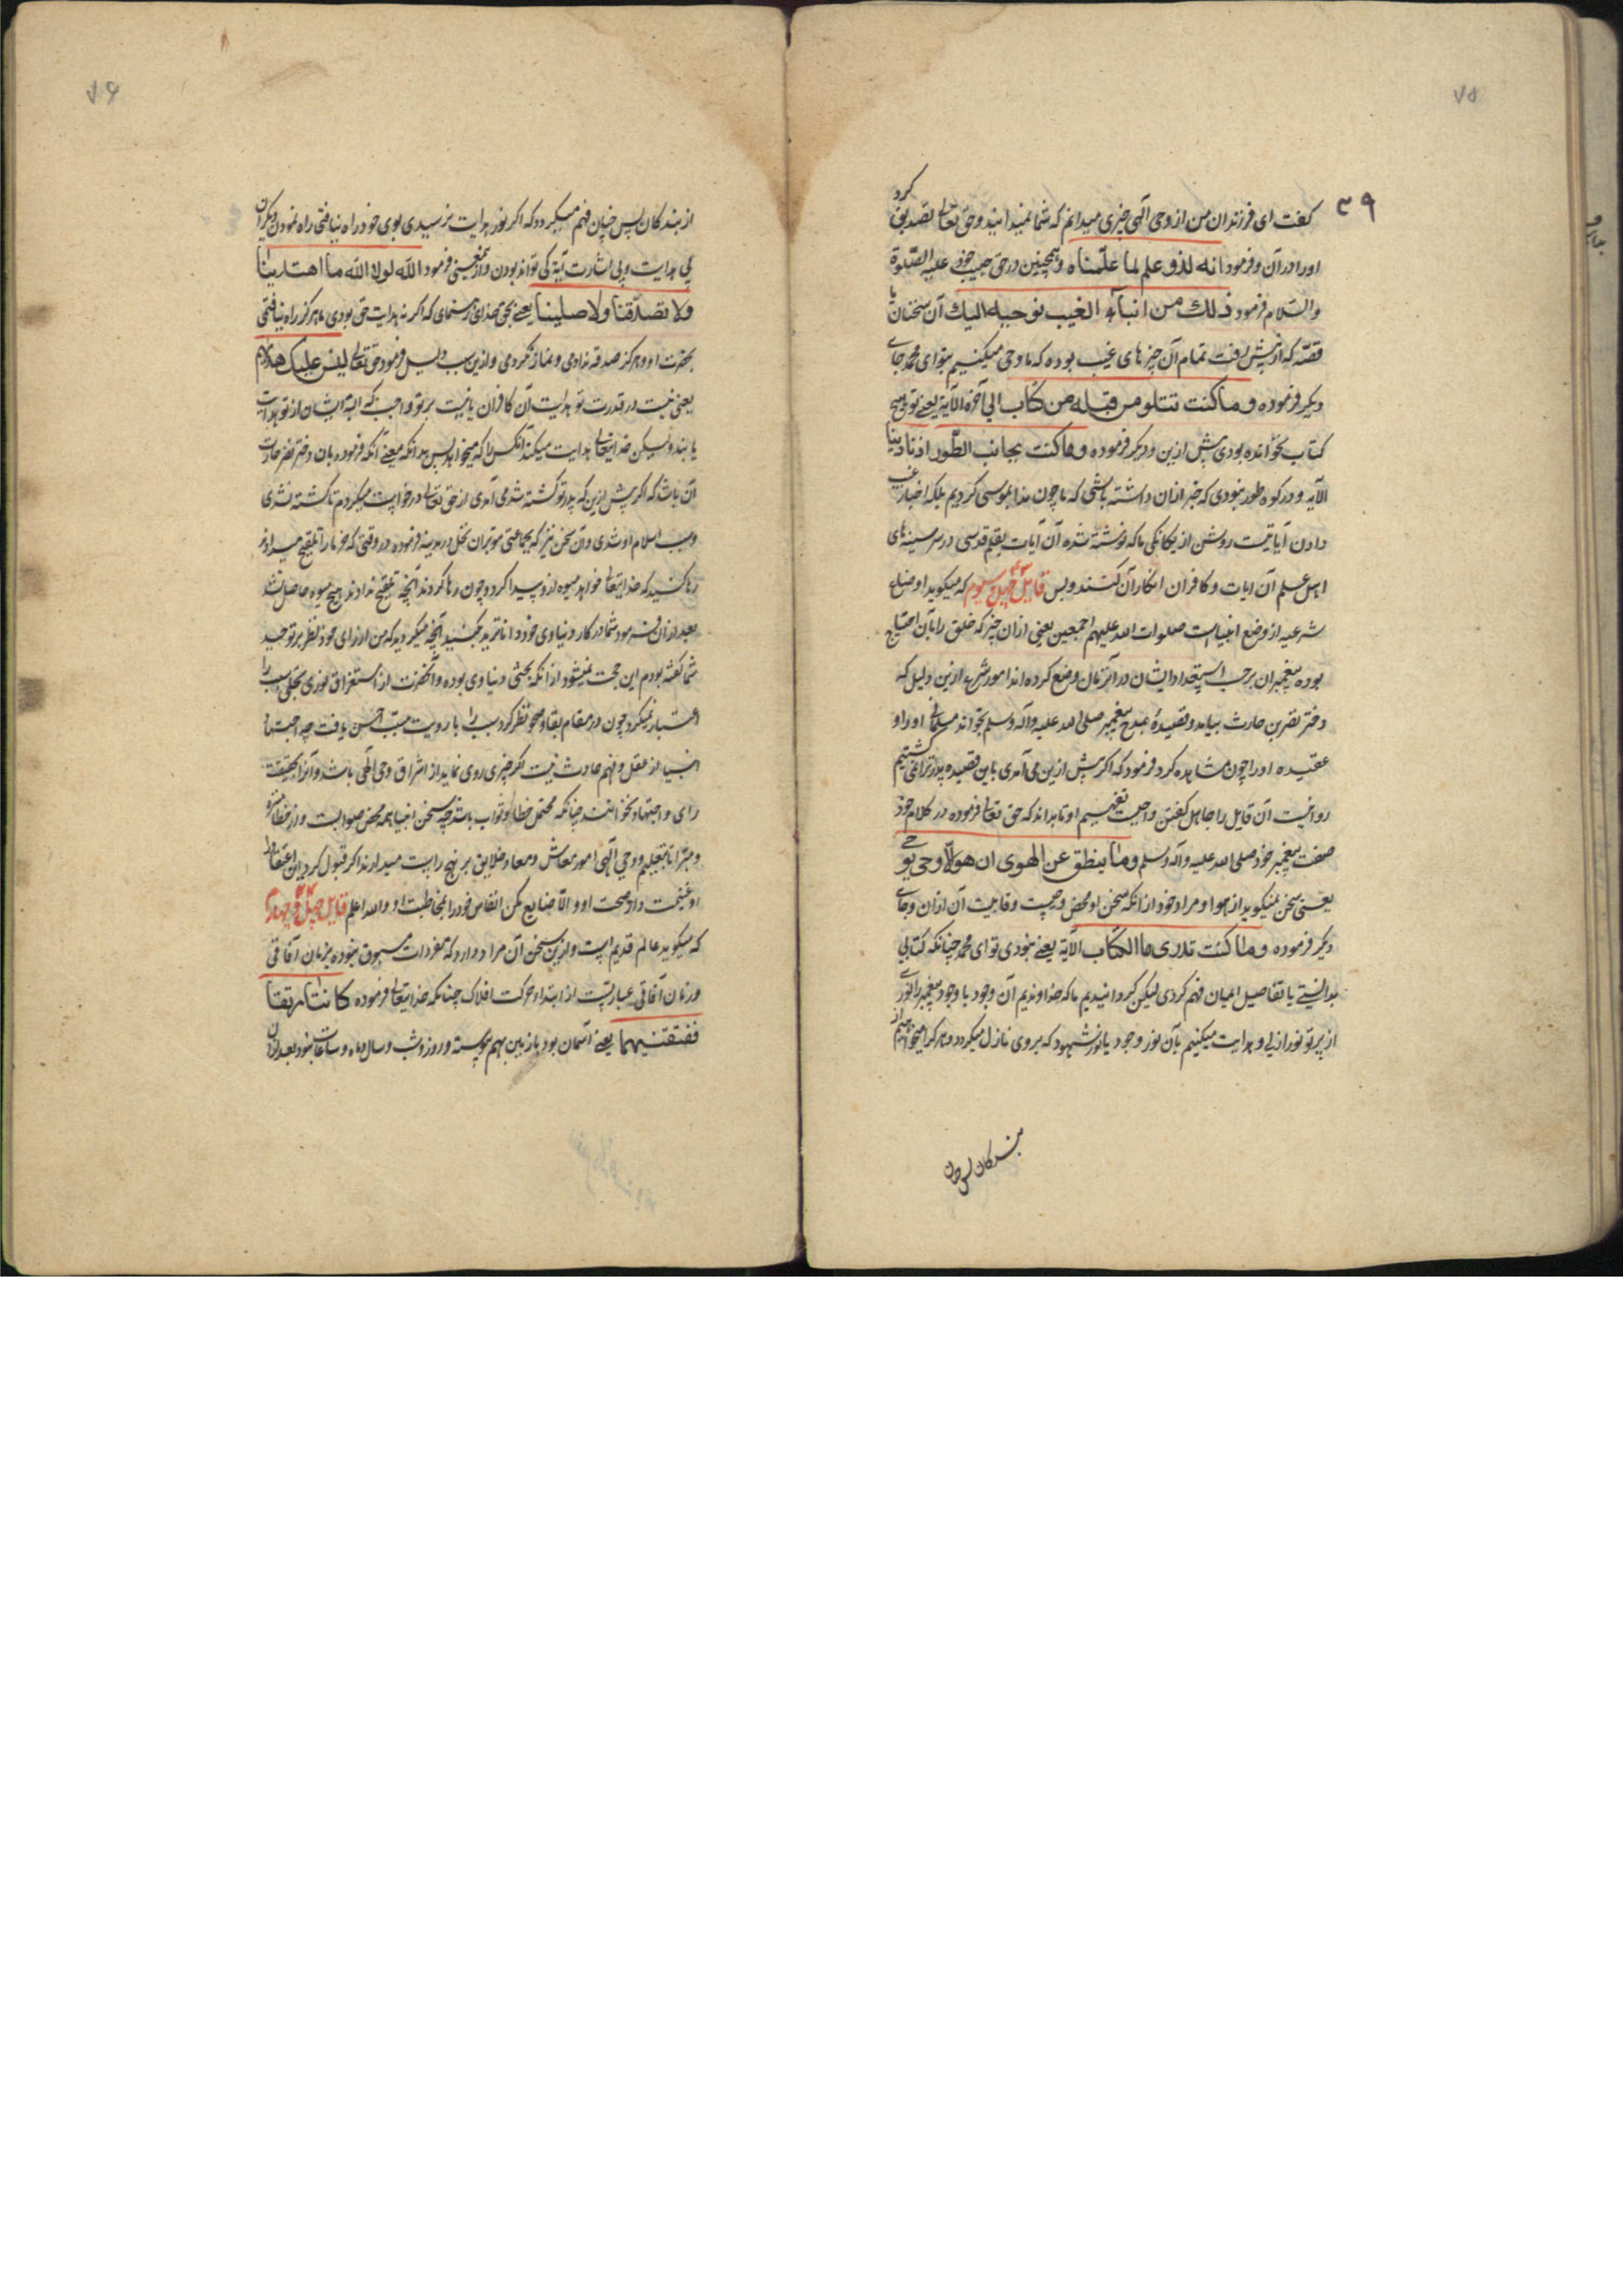 ۷۵
۳۹
گفت ای فرزندان من از وحی الهی چیزی میدانم که شما نمیدانید و حق تعالی تصدیق کرد
او را در آن و فرمود انه لذو علم لما علمناه و همچنین در حق حبیب خود علیه الصلوة
والسلام فرمود ذلك من انباء الغیب نوحیه الیك آن سخنان با
قصه که از پیش رفت تمام آن چیزهای غیب بوده که ما وحی میکنیم بتو ای محمد جای
دیگر فرموده وما کنت تتلو من قبله من کتاب الی آخره الآیة یعنی تو هیچ
کتاب نخوانده بودی پیش ازین و دیگر فرموده وما کنت بجانب الطور اذ نادینا
الآیه و در کوه طور نبودی که خبر از آن داشته باشی که ما چون ندا بموسی کردیم بلکه اخبار غیب
دادن آیاتیست روشن از یگانگی ما که نوشته شده آن آیات بقلم قدسی در سینه‌های
اهل علم آن ایات و کافران انکار آن کنند و بس قایل چهل و سیوم که میگوید اوضاع
شرعیه از وضع انبیاست صلوات الله علیهم اجمعین یعنی از آن چیز که خلق را بآن احتیاج
بوده پیغمبران برحسب استعداد ایشان در آن زمان وضع کرده‌اند امور شرع ازین دلیل که
دختر نضر بن حارث بیامد و قصیدهٔ بمدح پیغمبر صلی الله علیه وآله وسلم بخواند مسلمانی او را و
عقیده او را چون مشاهده کرد فرمود که اگر پیش ازین می آمدی باین قصیده پدر ترا نمی کشتیم
روا نیست آن قایل را جاهل گفتن واجبست تفهیم او تا بداند که حق تعالی فرموده در کلام خود
صفت پیغمبر خود صلی الله علیه وآله وسلم وما ینطق عن الهوی ان هو الا وحی یوحی
یعنی سخن نمیگوید از هوا و مراد خود از آنکه سخن او محض وحیست و قابلیت آن از آن و جای
دیگر فرموده وما کنت تدری ما الکتاب الآیة یعنی نبودی تو ای محمد چنانکه کتاب
بدانستی یا تفاصیل ایمان فهم کردی لیکن گردانیدیم ما که خداوندیم آن وجود با وجود پیغمبر را نوری
از پرتو نور ازلی و هدایت میکنیم بآن نور وجود یا نور شهود که بروی نازل میگردد و هر که را میخواهیم از
بندگان پس چنان
۷۶
از بندگان پس چنان فهم میگردد که اگر نور هدایت نرسیدی بوی خود راه نیافتی راه نمودن دیگران
بی هدایت و بی اشارت آیة کی تواند بودن و ازین معنی فرمود الله لولا الله ما اهتدینا
ولا تصدقنا ولا صلینا یعنی بحق خدای رهنمای که اگر نه هدایت حق بودی ما هرگز راه نیافتی
بحضرت او و هرگز صدقه ندادمی و نماز نکردمی و ازین سبب فرمود حق تعالی لیس علیک هداهم
یعنی نیست در قدرت تو هدایت آن کافران یا نیست بر تو واجب که البته ایشان از تو هدایت
یابند ولیکن خدایتعالی هدایت میکند آنکس را که میخواهد پس بدانکه معنی آنکه فرموده بآن دختر نضر حارث
آن باشد که اگر پیش ازین که پدر تو کشته شدی می آمدی از حق تعالی درخواست میکردم تا کشته نشدی
و سبب اسلام او شدی و آن سخن نیز که بجماعتی موبران نخل در مدینه فرموده در وقتی که خرما را تلقیح میدادند
رها کنید که خدایتعالی خواهد میوه از و پیدا کرد و چون رها کردند آنچه تلقیح ندادند هیچ میوه حاصل نشد
بعد از آن فرمود شما در کار دنیاوی خود داناترید بکنید آنچه میکردید که من از رای خود نظر بر توحید
شما گفته بودم این حجت نمیشود از آنکه بحثی دنیاوی بوده و آنحضرت از استغراق نوری تجلی سبب را
اعتبار نمیکرد چون در مقام بقا و صحو نظر کرد سبب را با رویت مسبب احسن یافت چه اجتهاد
انبیا از عقل و فهم حادث نیست اگر چیزی روی نماید از اشراق وحی الهی باشد و آنرا بحقیقت
رای و اجتهاد نخوانند چنانکه محتمل خطا و ثواب باشد چه سخن انبیا همه محض صوابست و از خطا منزه
و مبرا تا بتعلیم و وحی الهی امور معاش و معاد خلایق بر نهج راست میدارند اگر قبول کرد این اعتقاد را
او غنیمت داد صحبت او و الا ضایع مکن انفاس خود را بمخاطبت او و الله اعلم قایل چهل و چهارم
که میگوید عالم قدیم است و ازین سخن آن مراد دارد که مفردات مسبوق نبوده بزمان آفاقی
و زمان آفاقی عبارتست از ابتداء حرکت افلاک چنانکه خدایتعالی فرموده کانتا رتقا
ففتقنیهما یعنی آسمان بود با زمین بهم پیوسته و روز و شب و سال و ماه و ساعات نبود بعد از آن